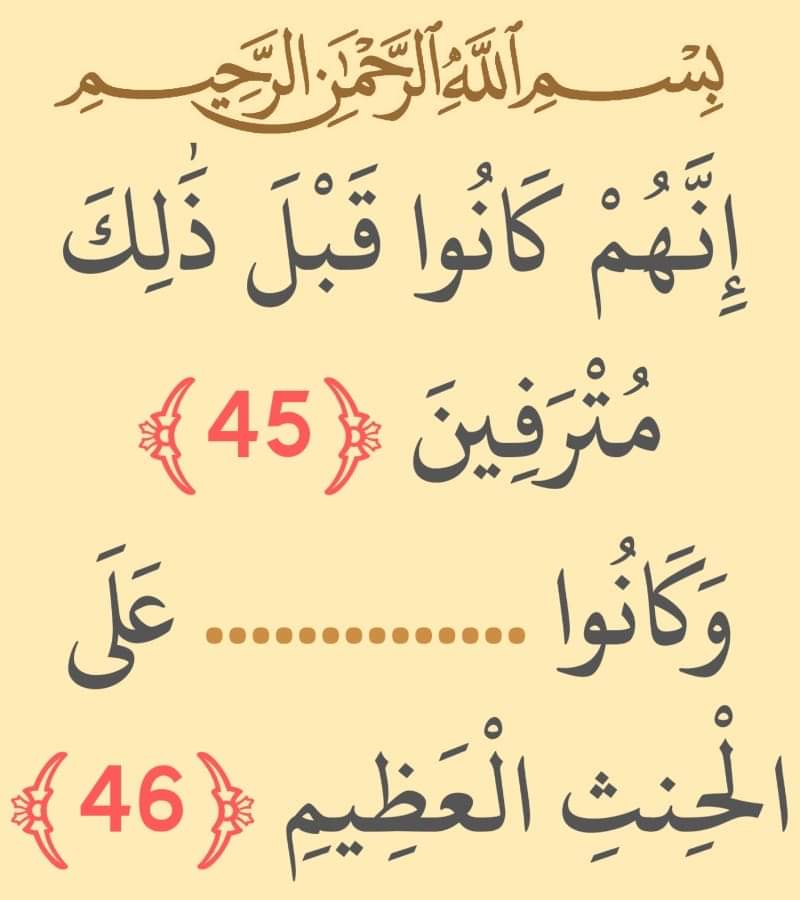 بِسْمِ ٱللَّهِ ٱلرَّحْمَٰنِ ٱلرَّحِيمِ
إِنَّهُمْ كَانُوا قَبْلَ ذَٰلِكَ
مُتْرَفِينَ ﴿45﴾
وَكَانُوا .............. عَلَى
الْحِنثِ الْعَظِيمِ ﴿46﴾